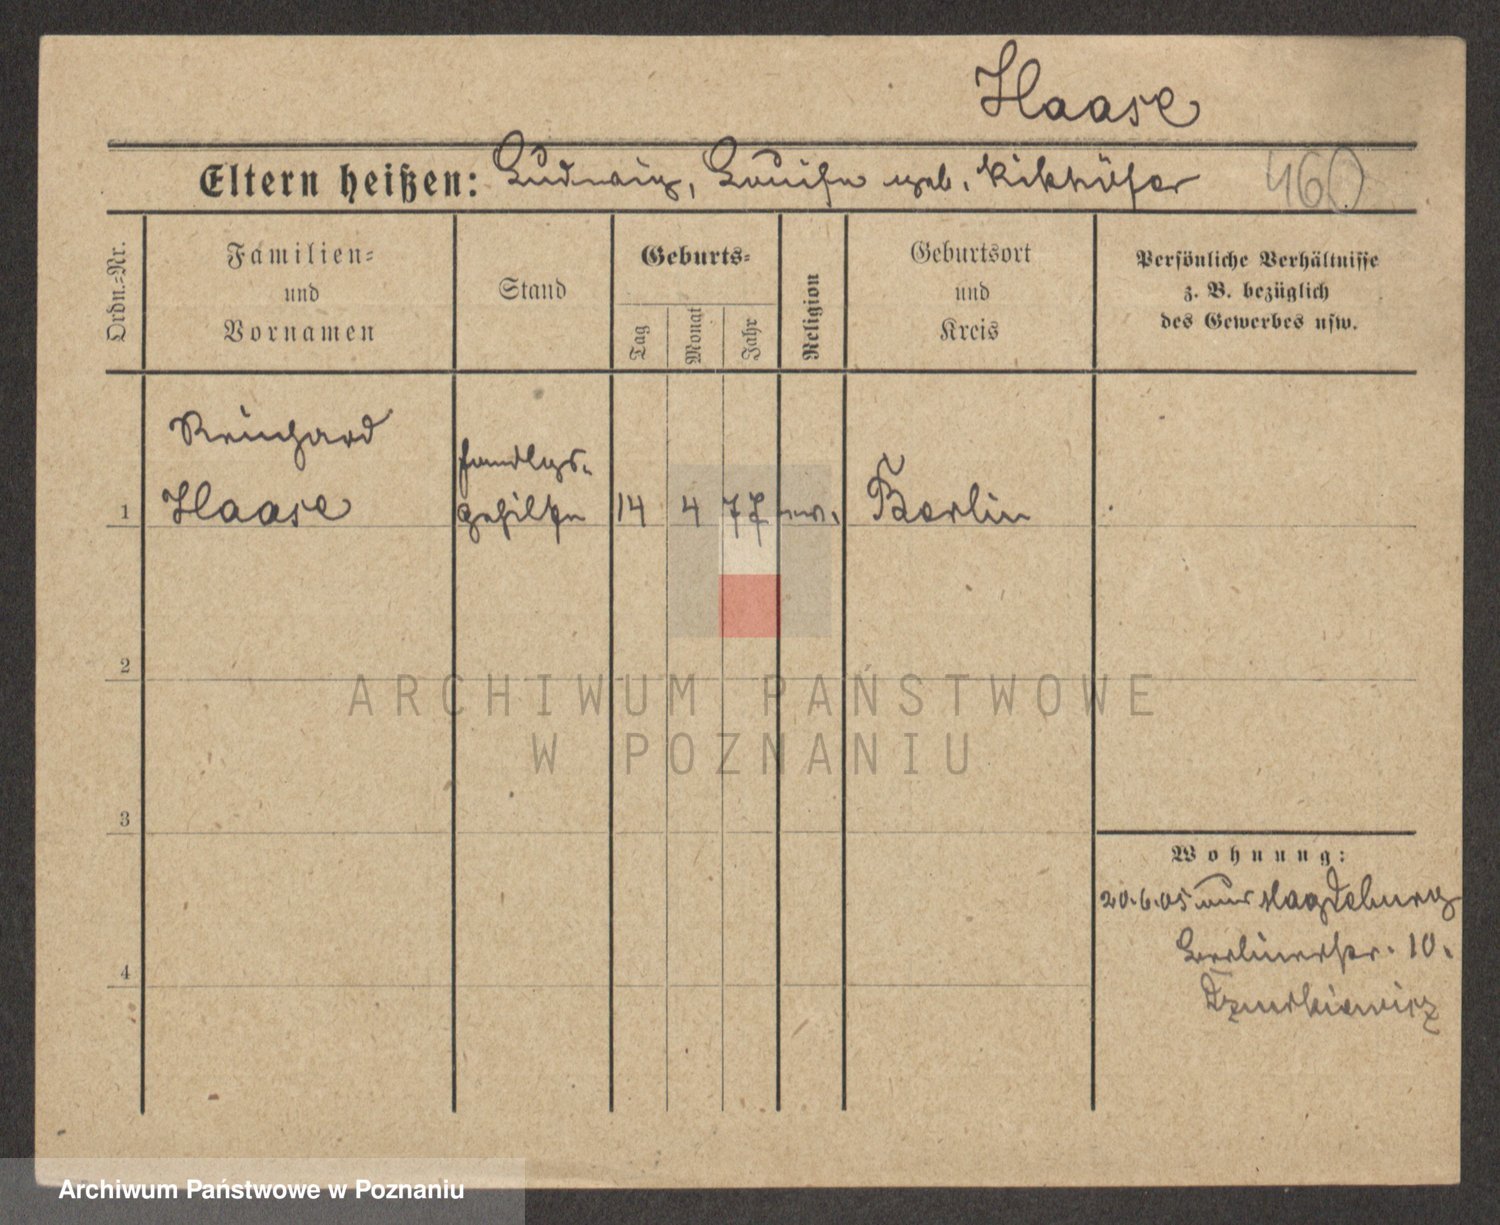 Haase
Eltern heißen: Ludwig, Louise geb. Kikhöfer
460
Ordn.=Nr.
Familien=
und
Vornamen
Stand
Geburts=
Tag
Monat
Jahr
Religion
Geburtsort
und
Kreis
Persönliche Verhältnisse
z. B. bezüglich
des Gewerbes usw.
Reinhard
Handlgs-
1 Haase gehilfe 14 4 77 ev. Berlin
2
ARCHIWUM PAŃSTWOWE
W POZNANIU
3
Wohnung:
20.6.05 aus Magdeburg
Berlinerstr. 10.
4
Archiwum Państwowe w Poznaniu